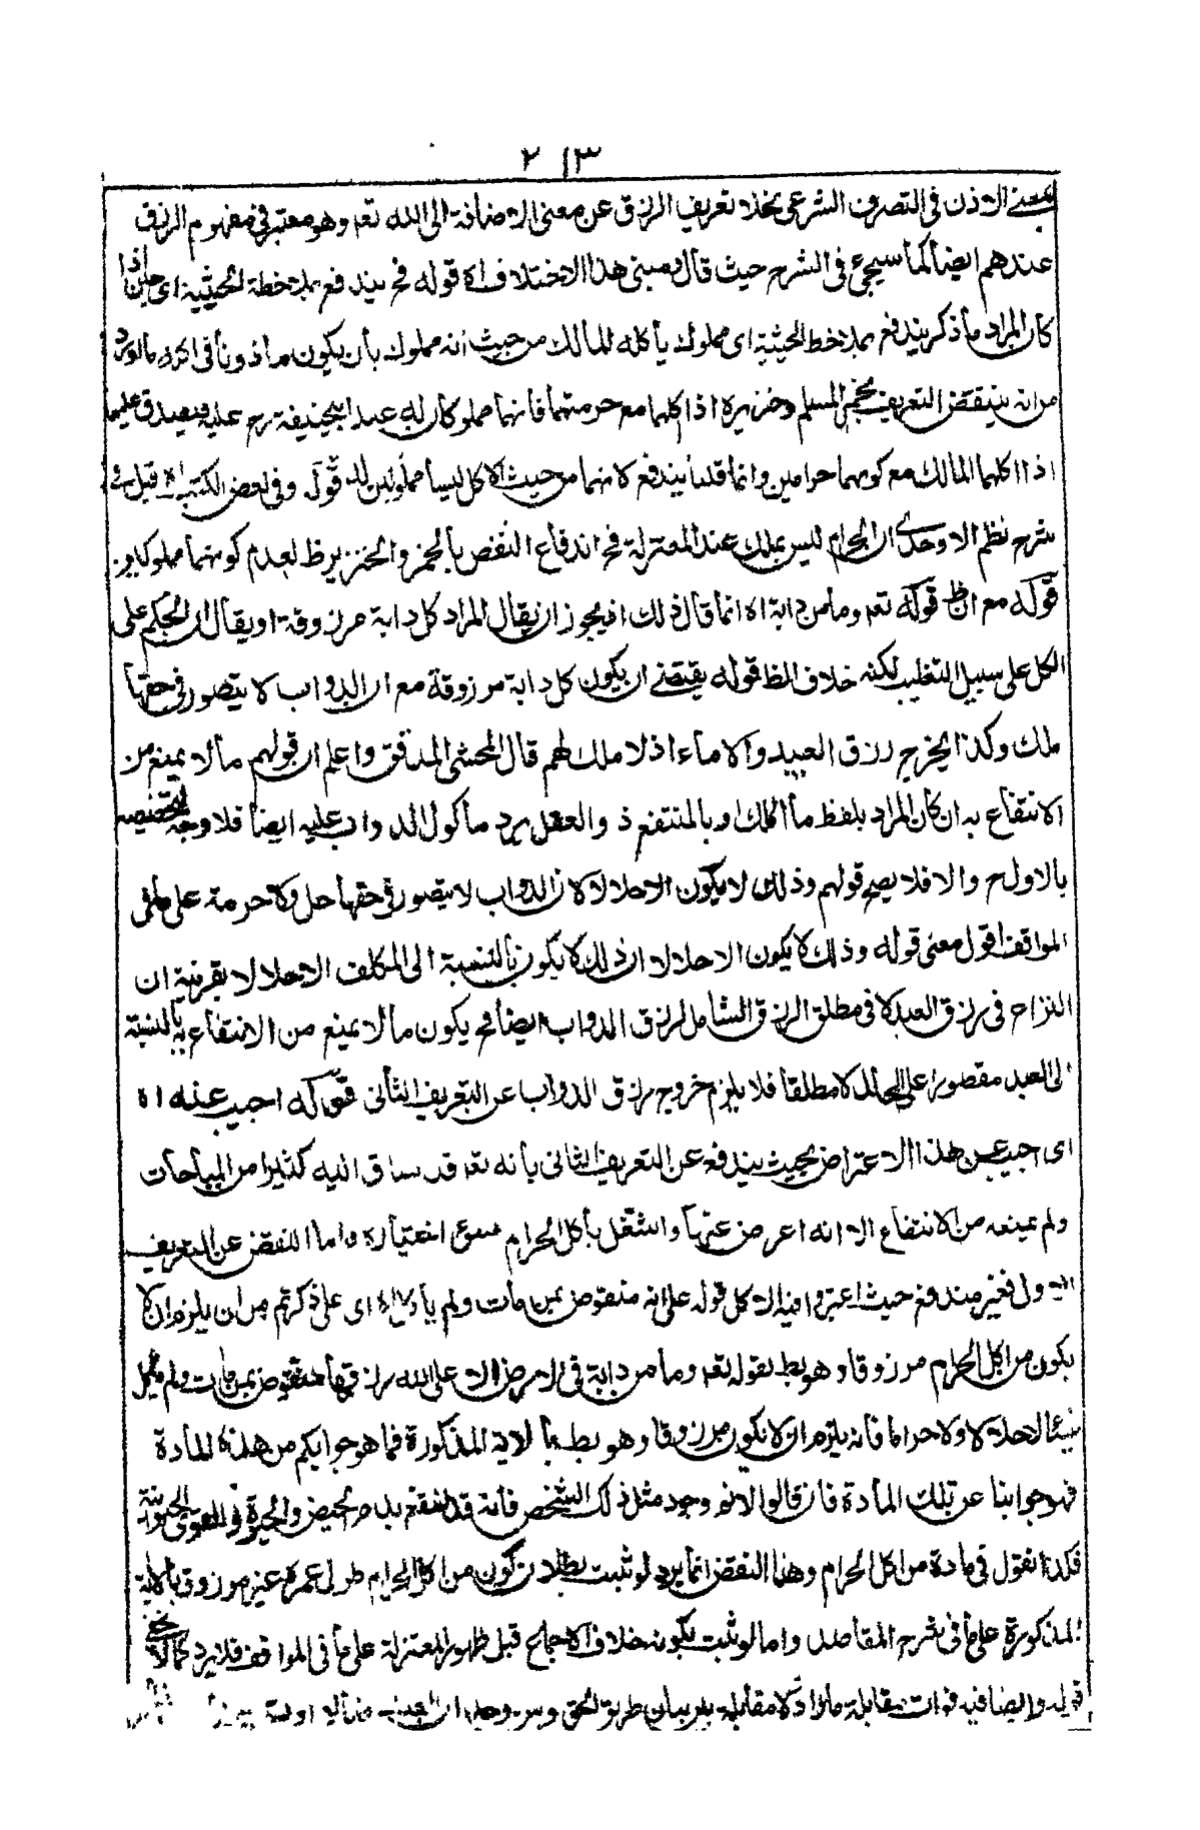 ٢١٣
بمعنى الاذن فى التصرف الشرعى بخلا تعريف الرزق عن معنى الاضافة الى الله تعه وهو معتبر فى مفهوم الرزق
عندهم ايضا كما سيجئ فى الشرح حيث قال ومبنى هذا الاختلاف اه قوله فح يندفع بملاحظة الحيثية اى حين اذا
كان المراد ما ذكر يندفع بملاحظ الحيثية اى مملوك يأكله المالك من حيث انه مملوك بأن يكون مأذونا فى اكله ما اورد
من انه ينتقض التعريف بخمر المسلم وخنزيره اذا اكلهما مع حرمتهما فانهما مملوكان له عند ابيحنيفة رح عليه فيصدق عليهما
اذا اكلهما المالك مع كونهما حرامين وانما قلنا يندفع لانهما من حيث الاكل ليسا مملوكين لله قوله وفى بعض الكتب اه قبل فى
شرح نظم الاوحدى ان الحرام ليس بملك عند المعتزلة فح اندفاع النقض بالخمر والخنزير ظ لعدم كونهما مملوكين
قوله مع ان ظ قوله تعه وما من دابة اه انما قال ذلك اذ يجوز ان يقال المراد كل دابة مرزوقة او يقال ان الحكم على
الكل على سبيل التغليب لكنه خلاف الظ قوله يقتضى ان يكون كل دابة مرزوقة مع ان الدواب لا يتصور فى حقها
ملك وكذا يخرج رزق العبيد والاماء اذ لا ملك لهم قال المحشى المدقق واعلم ان قولهم ما لا يمنع من
الانتفاع به ان كان المراد بلفظ ما الملك او بالمنتفع ذ والعقل يرد مأكول الدواب عليه ايضا فلا وجه لتخصيصه
بالاول ح والا فلا يصح قولهم وذلك لا يكون الاحلالا لان الدواب لا يتصور فى حقها حل ولا حرمة على ما فى
المواقف اقول معنى قوله وذلك لا يكون الاحلالا ان ذلك لا يكون بالنسبة الى المكلف الاحلالا بقرينة ان
النزاع فى رزق العبد لا فى مطلق الرزق الشامل لرزق الدواب ايضا فح يكون ما لا يمنع من الانتفاع به بالنسبة
الى العبد مقصورا على الحلال لا مطلقا فلا يلزم خروج رزق الدواب عن التعريف الثانى قوله اجيب عنه اه
اى اجيب عن هذا الاعتراض بحيث يندفع عن التعريف الثانى بأنه تعه قد ساق اليه كثيرا من المباحات
ولم يمنعه من الانتفاع الا انه اعرض عنها واشتغل بأكل الحرام بسوء اختياره واما النقض عن التعريف
الاول فغير مندفع حيث اعتبروا فيه الاكل قوله على انه منقوض بمن مات ولم يأكل اه اى على ذكرتم من ان يلزم ان لا
يكون من اكل الحرام مرزوقا وهو بط بقوله تعه وما من دابة فى الارض الا على الله رزقها منقوض بمن مات ولم يأكل
شيئا لا حلالا ولا حراما فأنه يلزم ان لا يكون مرزوقا وهو بط بالاية المذكورة فما هو جوابكم من هذه المادة
فهو جوابنا عن تلك المادة فان قالوا لانم وجود مثل ذلك الشخص فأنه قد انتفع بدم الحيض والحيوة والقوى الحيوانية
فكذا نقول فى مادة من اكل الحرام وهذا النقض انما يرد لو ثبت بطلان كون من اكل الحرام طول عمره غير مرزوق بالاية
المذكورة على ما فى شرح المقاصد واما لو ثبت بكونه خلاف الاجماع قبل ظهور المعتزلة على ما فى المواقف فلا يرد كما لا يخفى
قوله وايضا فيه فوات مقابلة